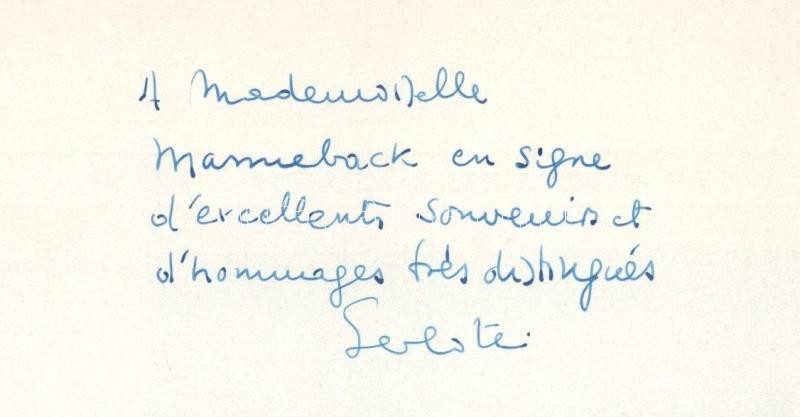 A Mademoiselle
Manneback en signe
d'excellents souvenirs et
d'hommages très distingués